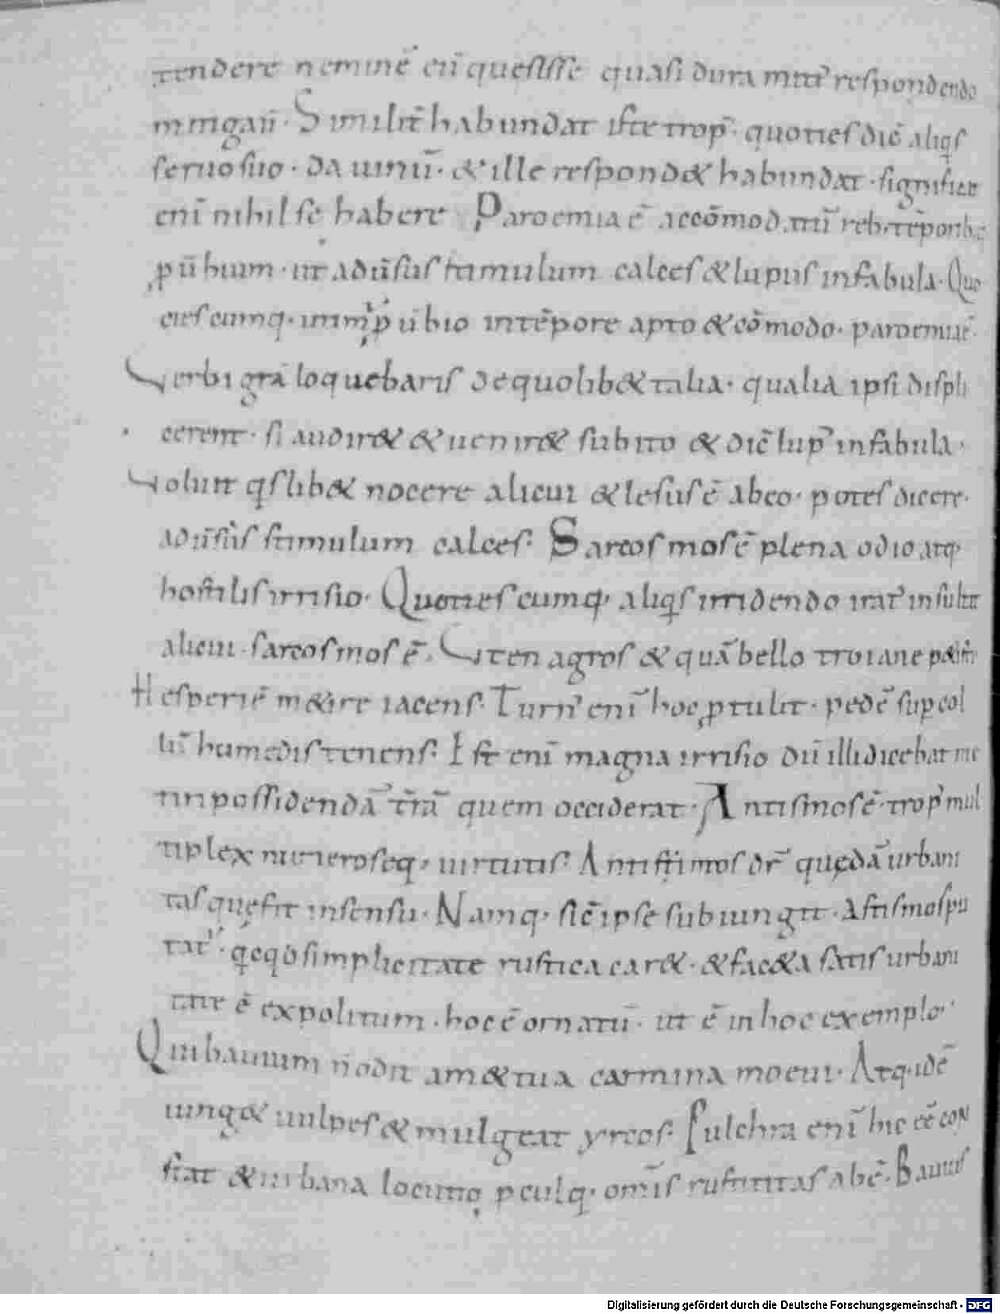 tendere neminē eū quesisse quasi dura mitt᷒ respondendo
mitigaū. Similit̄ habundat iste trop᷒. quoties dic̄ aliqs
seruo suo. da uinū. & ille respond& habundat. significat
enī nihil se habere Paroemia ē accōmodatū reb; tēporib;
puƀium. ut aduersus stimulum calces & lupus in fabula. Quo
ciescumq. puƀio in tēpore apto & cōmodo. paroemia ē.
Verbi grā loquebaris de quolib& talia. qualia ipsi displi
cerent. si audir& & uenir& subito & dic̄ lup᷒ in fabula.
Voluit qslib& nocere alicui & lesus ē ab eo. potes dicere.
aduersus stimulum calces. Sarcosmos ē plena odio atq.
hostilis irrisio. Quotiescumq. aliqs irridendo irat᷒ insultat
alicui. sarcosmos ē. Uten agros & quā bello troiane petisti
Hesperiē m&ire iacens. Turn᷒ enī hoc ptulit. pedē sup col
lū humedis tenens. Est enī magna irrisio dū illi dicebat me
tiri possidendā t̄rā quem occiderat. Antismos ē trop᷒ mul
tiplex numeroseq. uirtutis. Antismos dr̄ quędā urbani
tas quę fit in sensu. Namq. sic̄ ipse subiungit. Astismos pu
tat᷒. qcqd simplicitate rustica car& & fac&a satis urbani
tate ē expolitum. hoc ē ornatū. ut ē in hoc exemplo.
Qui bauium n̄ odit am& tua carmina moeui. Atq. idē
iung& uulpes & mulgeat yrcos. Pulchra enī hic ēē con
stat & urbana locutio pculq. om̄is rustititas abē. Bauius
Digitalisierung gefördert durch die Deutsche Forschungsgemeinschaft - DFG